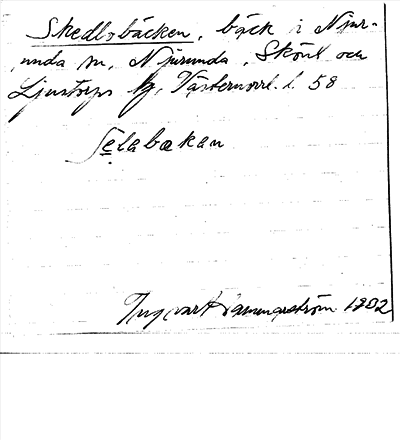 Skedlobäcken, bäck i Njur-
unda sn, Njurunda, Sköns och
Ljustorps tg, Västernorrl. l. 58
ʃelabækan
Ingvart 1932